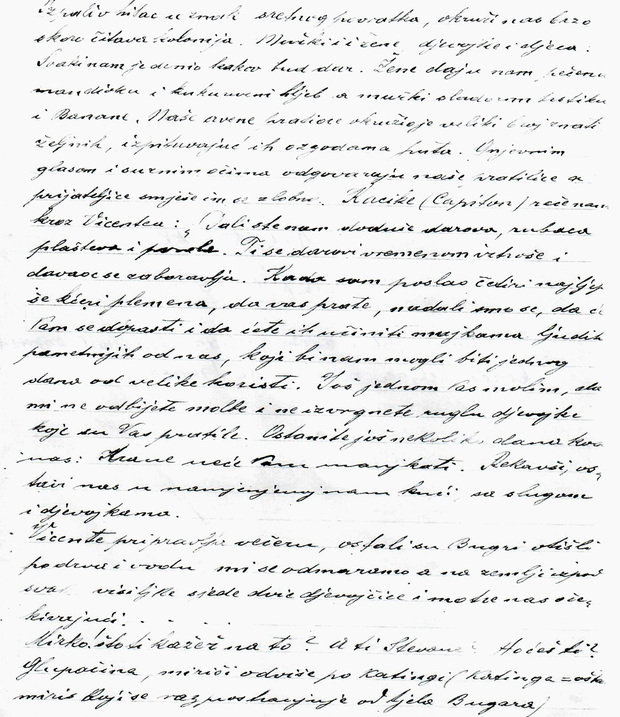 Ispaliv hitac u znak sretnog povratka, okruži nas brzo
skoro čitava kolonija. Muški i i žene, djevojke i djeca.
Svaki nam je donio kakov bud dar. Žene daju nam pečenu
mandioku i kukuruzni hljeb a muški slador
i Banane. Naše crvene pratioce okružio je veliki broj znati
željnik, izpitivajuć ih o zgodama puta. Gnjevnim
glasom i surnim očima odgovaraju naše pratilice a
prijateljice smješe im se zlobno. Kacike (Capiton) reče nam
kroz Vicentea: „Dali ste nam dodnić darova, rubaca
plašteva i . Ti se darovi vremenom istroše i
davaoc se zaboravlja. Kada sam poslao četiri najljep
še kćeri plemena, da vas prate, nadali smo se, da će
Vam se dorasti i da ćete ih učiniti majkama ljudih
pametnijih od nas, koji bi nam mogli biti jednog
dana od velike koristi. Još jednom Vas molim, da
mi ne odbijete molbe i ne izvrgnete ruglu djevojke
koje su Vas pratile. Ostanite još nekoliko dana kod
nas: Hrane neće Vam manjkati. Rekavši, os-
tavi nas u namjenjenoj nam kući sa slugom
i djevojkama.
Vicente pripravlja večeru, ostali su Bugri otišli
po drva i vodu mi se odmaramo a na zemlji izpod
svake visiljke sjede dvie djevojčice i motre nas oče-
kivajući . . . .
Mirko! što ti kažeš na to? A ti Stevane? Hoćeš ti?
Glupačina, miriši odviše po Katingi (Katinga = oštar
miris koji se razprostranjuje od tjela Bugara)